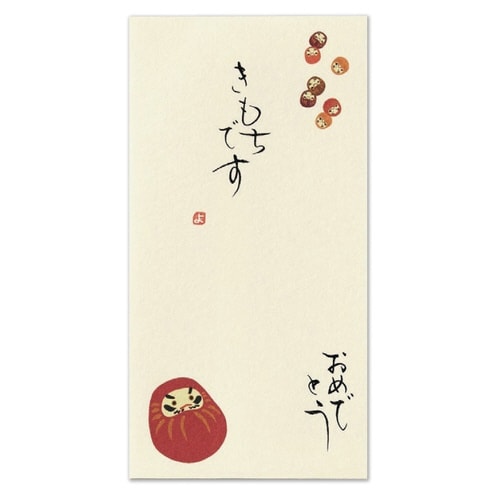 きもち
です
よ
おめで
とう